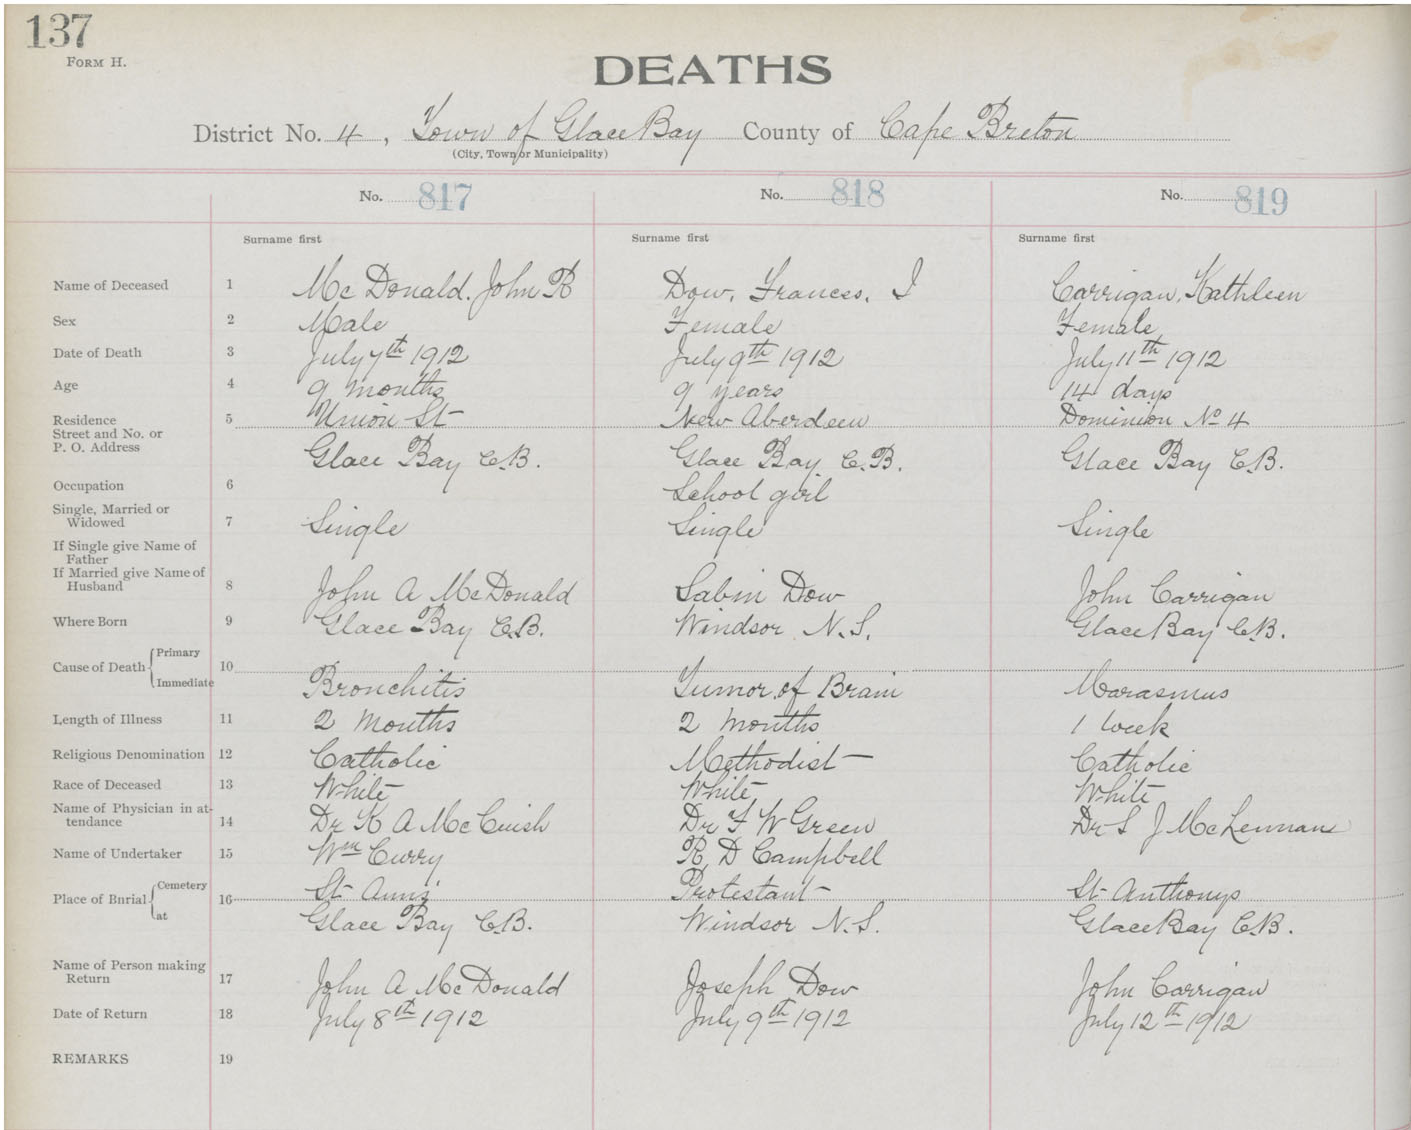 137
FORM H.
DEATHS
District No. 4, Town of Glace Bay County of Cape Breton
(City, Town or Municipality)
No. 817 No. 818 No. 819
Surname first Surname first Surname first
Name of Deceased 1 Mc Donald. John R Dow, Frances. I Carrigan, Kathleen
Sex 2 Male Female Female
Date of Death 3 July 7th 1912 July 9th 1912 July 11th 1912
Age 4 9 months 9 years 14 days
Residence 5 Union St New Aberdeen Dominion No 4
Street and No. or
P. O. Address Glace Bay C.B. Glace Bay C.B. Glace Bay C.B.
Occupation 6 School girl
Single, Married or
Widowed 7 Single Single Single
If Single give Name of
Father
If Married give Name of
Husband 8 John A McDonald Sabin Dow John Carrigan
Where Born 9 Glace Bay C.B. Windsor N.S. Glace Bay C.B.
Primary
Cause of Death 10
Immediate Bronchitis Tumor of Brain Marasmus
Length of Illness 11 2 Months 2 Months 1 Week
Religious Denomination 12 Catholic Methodist Catholic
Race of Deceased 13 White White White
Name of Physician in at-
tendance 14 Dr K A McCuish Dr F W Green Dr S J McLennan
Name of Undertaker 15 Wm Curry R, D Campbell
Cemetery St Anns' Protestant St Anthonys
Place of Bnrial 16
at Glace Bay C.B. Windsor N.S. Glace Bay C.B.
Name of Person making
Return 17 John A McDonald Joseph Dow John Carrigan
Date of Return 18 July 8th 1912 July 9th 1912 July 12th 1912
REMARKS 19